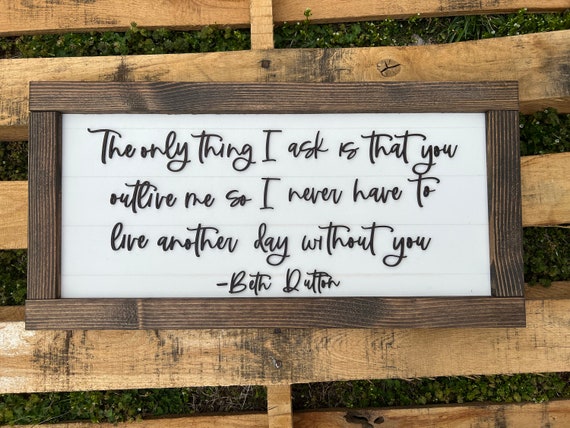 The only thing I ask is that you
outlive me so I never have to
live another day without you
-Beth Dutton